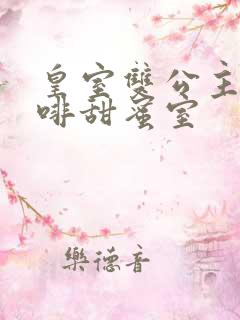 皇室雙公主
啡甜蜜室
樂德音